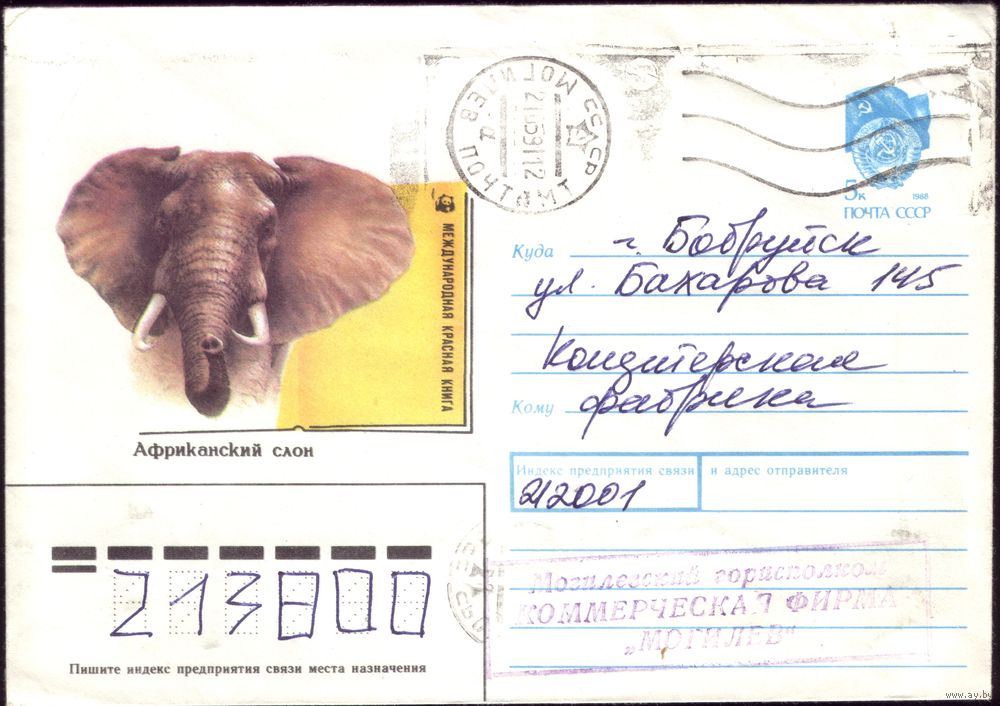 МОГИЛЕВ ПОЧТАМТ
СССР
5к
1988
ПОЧТА СССР
МЕЖДУНАРОДНАЯ КРАСНАЯ КНИГА
Африканский слон
Куда г. Бобруйск
ул. Бахарова 145
Кондитерская
Кому фабрика
Индекс предприятия связи и адрес отправителя
212001
Могилевский горисполком
КОММЕРЧЕСКАЯ ФИРМА
„МОГИЛЕВ“
213800
Пишите индекс предприятия связи места назначения
www.ay.by